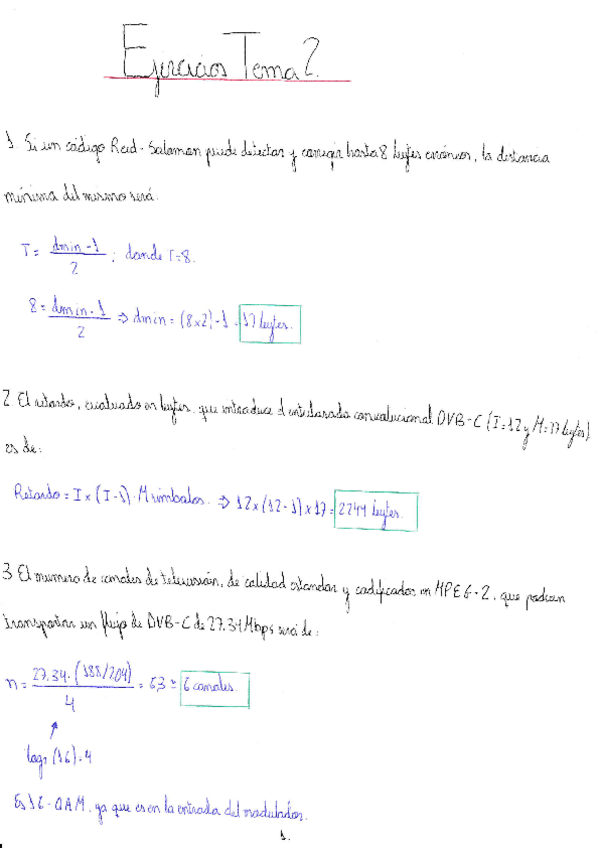 Ejercicios Tema 2.
1. Si un código Reed-Salomon puede detectar y corregir hasta 8 bytes erróneos, la distancia
mínima del mismo será:
T = dmin - 1 / 2 ; donde T=8.
8 = dmin - 1 / 2 => dmin = (8x2) - 1 = 17 bytes.
2. El retardo, evaluado en bytes, que introduce el entrelazado convolucional DVB-C (I=12 y M=17 bytes)
es de:
Retardo = I x (I-1) · M símbolos. => 12 x (12-1) x 17 = 2244 bytes.
3. El numero de canales de televisión, de calidad estandar y codificados en MPEG-2, que podrian
transportar un flujo de DVB-C de 27.34 Mbps será de:
n = 27.34 · (188/204) / 4 = 6,3 ≅ 6 canales.
log2 (16) = 4
Es 16-QAM, ya que es en la entrada del modulador.
1.